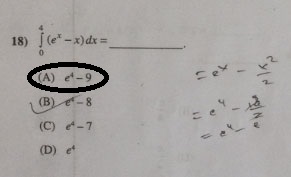 18) ∫₀⁴ (eˣ – x) dx = ________
(A) e⁴ – 9
(B) e⁴ – 8
(C) e⁴ – 7
(D) e⁴
= eˣ – x²/2
= e⁴ –
= e⁴ –